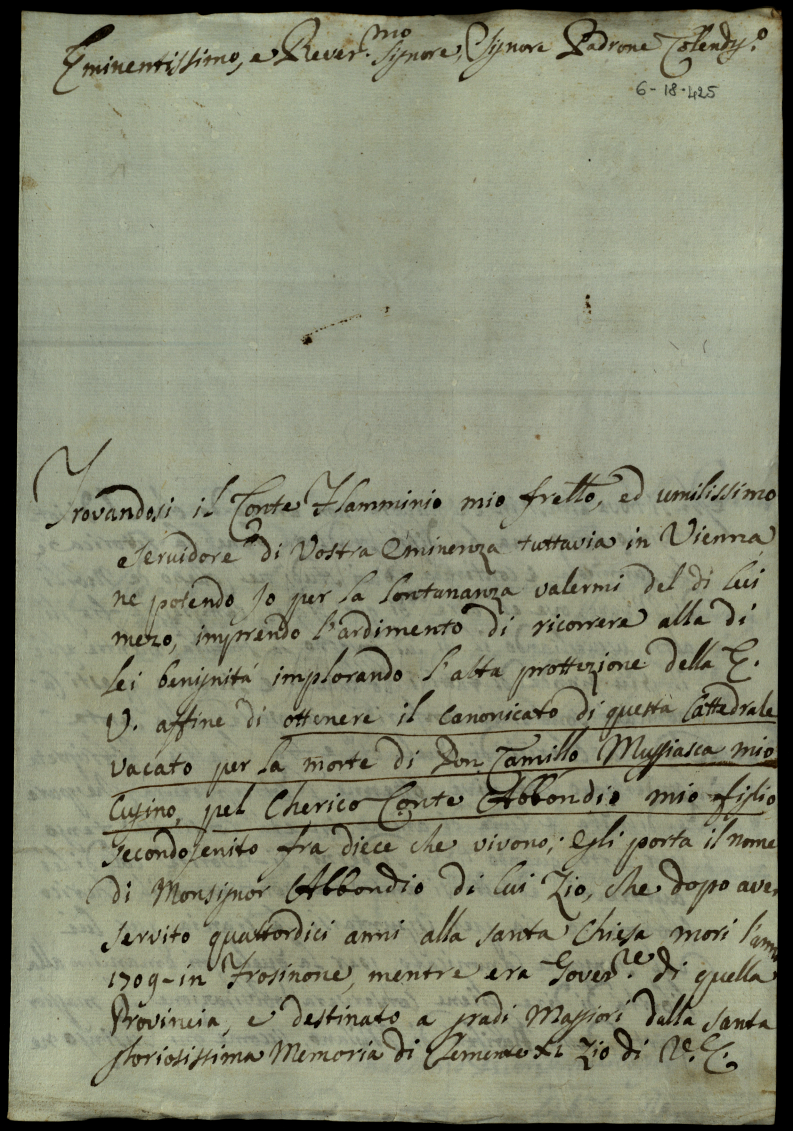 Eminentissimo, e Rever.mo Signore, Signore Padrone Colendis.o
6-18-425
Trovandosi il Conte Flamminio mio frello, ed umilissimo
e servidore di Vostra Eminenza tuttavia in Vienna
ne potendo Jo per la lontananza valermi del di lui
mezo, imprendo l'ardimento di ricorrere alla di
lei benignitá implorando l'alta prottezione della E.
V. affine di ottenere il Canonicato di questa Cattedrale
vacato per la morte di Don Camillo Mugiasca mio
Cugino, pel Cherico Conte Abbondio mio figlio
secondogenito fra diece che vivono; egli porta il nome
di Monsignor Abbondio di lui Zio, che dopo aver
servito quattordici anni alla santa Chiesa morì l'anno
1709 in Frosinone, mentre era Gover.re di quella
Provincia, e destinato a gradi Maggiori dalla santa
gloriosissima Memoria di Clemente XI Zio di V. E.